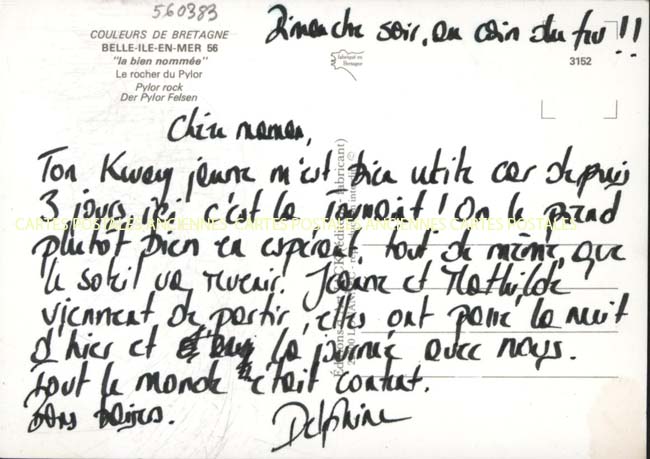 560383
COULEURS DE BRETAGNE
BELLE-ILE-EN-MER 56
"la bien nommée"
Le rocher du Pylor
Pylor rock
Der Pylor Felsen
Dimanche soir, au coin du feu !!
fabriqué en
Bretagne
3152
Chère maman,
Ton Kway jaune m'est bien utile car depuis
3 jours ici c'est la tourmente ! On le prend
plutôt bien en espérant, tout de même, que
le soleil va revenir. Jeanne et Mathilde
viennent de partir, elles ont passé la nuit
d'hier et la journée avec nous.
Tout le monde était content.
Bons baisers.
Delphine
CARTES POSTALES ANCIENNES CARTES POSTALES ANCIENNES CARTES POSTALES